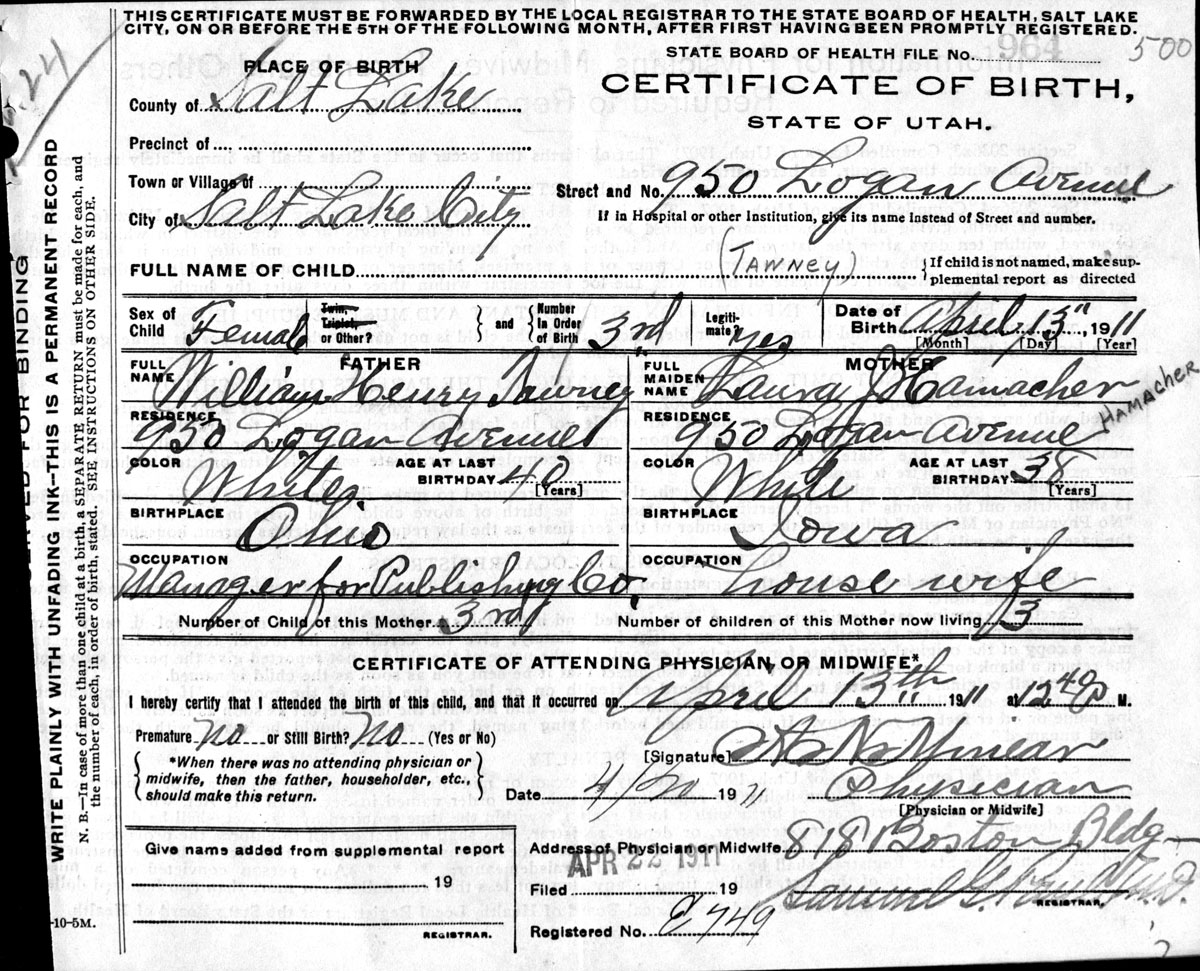 THIS CERTIFICATE MUST BE FORWARDED BY THE LOCAL REGISTRAR TO THE STATE BOARD OF HEALTH, SALT LAKE
CITY, ON OR BEFORE THE 5TH OF THE FOLLOWING MONTH, AFTER FIRST HAVING BEEN PROMPTLY REGISTERED.
STATE BOARD OF HEALTH FILE No. 964 500
PLACE OF BIRTH
CERTIFICATE OF BIRTH,
County of Salt Lake
STATE OF UTAH.
Precinct of
Town or Village of
Street and No. 950 Logan Avenue
City of Salt Lake City
If in Hospital or other Institution, give its name instead of Street and number.
FULL NAME OF CHILD (TAWNEY) { If child is not named, make sup-
plemental report as directed
Sex of Child Female Twin, Triplet, or Other? } and { Number In Order of Birth 3rd Legiti-mate? Yes Date of Birth April 13" 1911
[Month] [Day] [Year]
FATHER MOTHER
FULL NAME William Henry Tawney FULL MAIDEN NAME Laura J Hamacher
HAMACHER
RESIDENCE 950 Logan Avenue RESIDENCE 950 Logan Avenue
COLOR White AGE AT LAST BIRTHDAY 40 [Years] COLOR White AGE AT LAST BIRTHDAY 38 [Years]
BIRTHPLACE Ohio BIRTHPLACE Iowa
OCCUPATION Manager for Publishing Co. OCCUPATION House wife
Number of Child of this Mother 3rd Number of children of this Mother now living 3
CERTIFICATE OF ATTENDING PHYSICIAN OR MIDWIFE*
I hereby certify that I attended the birth of this child, and that it occurred on April 13th 1911 at 12 40 P M.
Premature No or Still Birth? No (Yes or No)
[Signature]
{ *When there was no attending physician or
midwife, then the father, householder, etc.,
should make this return. }
Date 4/20 1911 Physician
[Physician or Midwife]
Give name added from supplemental report
Address of Physician or Midwife 818 Boston Bldg
APR 22 1911
19
Filed 19 Samuel G.
REGISTRAR.
REGISTRAR.
Registered No. 749
-10-5M.
RESERVED FOR BINDING
WRITE PLAINLY WITH UNFADING INK—THIS IS A PERMANENT RECORD
N. B.—In case of more than one child at a birth, a SEPARATE RETURN must be made for each, and
the number of each, in order of birth, stated. SEE INSTRUCTIONS ON OTHER SIDE.